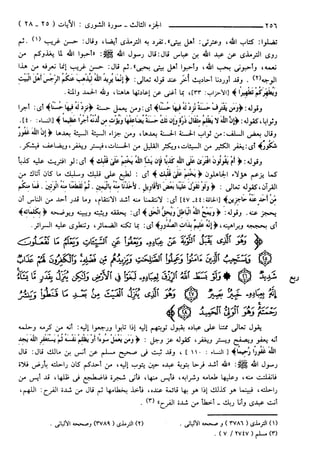 ٢٥٦ الجزء الثالث ـ سورة الشورى : الآيات ( ٢٥ ـ ٢٨ )
تضلوا: كتاب الله، وعترتي: أهل بيتي». تفرد به الترمذي أيضا، وقال: حسن غريب (١). ثم
روى الترمذي عن عبد الله بن عباس قال: قال رسول الله ﷺ: «أحبوا الله لما يغذوكم من
نعمه، وأحبوني بحب الله، وأحبوا أهل بيتي بحبي». ثم قال: حسن غريب إنما نعرفه من هذا
الوجه(٢). وقد أوردنا أحاديث أخر عند قوله تعالى: ﴿إِنَّمَا يُرِيدُ اللَّهُ لِيُذْهِبَ عَنكُمُ الرِّجْسَ أَهْلَ الْبَيْتِ
وَيُطَهِّرَكُمْ تَطْهِيرًا﴾ [الأحزاب: ٣٣]، بما أغنى عن إعادتها هاهنا، ولله الحمد والمنة.
وقوله: ﴿وَمَن يَقْتَرِفْ حَسَنَةً نَّزِدْ لَهُ فِيهَا حُسْنًا﴾ أي: ومن يعمل حسنة ﴿نَّزِدْ لَهُ فِيهَا حُسْنًا﴾ أي: أجرا
وثوابا، كقوله: ﴿إِنَّ اللَّهَ لَا يَظْلِمُ مِثْقَالَ ذَرَّةٍ وَإِن تَكُ حَسَنَةً يُضَاعِفْهَا وَيُؤْتِ مِن لَّدُنْهُ أَجْرًا عَظِيمًا﴾ [النساء: ٤٠].
وقال بعض السلف: من ثواب الحسنة الحسنة بعدها، ومن جزاء السيئة السيئة بعدها ﴿إِنَّ اللَّهَ غَفُورٌ
شَكُورٌ﴾ أي: يغفر الكثير من السيئات، ويكثر القليل من الحسنات، فيستر ويغفر، ويضاعف فيشكر.
وقوله: ﴿أَمْ يَقُولُونَ افْتَرَىٰ عَلَى اللَّهِ كَذِبًا فَإِن يَشَإِ اللَّهُ يَخْتِمْ عَلَىٰ قَلْبِكَ﴾ أي: لو افتريت عليه كذبا
كما يزعم هؤلاء الجاهلون ﴿يَخْتِمْ عَلَىٰ قَلْبِكَ﴾ أي: لطبع على قلبك وسلبك ما كان آتاك من
القرآن، كقوله تعالى: ﴿وَلَوْ تَقَوَّلَ عَلَيْنَا بَعْضَ الْأَقَاوِيلِ. لَأَخَذْنَا مِنْهُ بِالْيَمِينِ. ثُمَّ لَقَطَعْنَا مِنْهُ الْوَتِينَ. فَمَا مِنكُم
مِّنْ أَحَدٍ عَنْهُ حَاجِزِينَ﴾ [الحاقة: ٤٤ ـ ٤٧] أي: لانتقمنا منه أشد الانتقام، وما قدر أحد من الناس أن
يحجز عنه. وقوله: ﴿وَيَمْحُ اللَّهُ الْبَاطِلَ وَيُحِقُّ الْحَقَّ﴾ أي: يحققه ويثبته ويبينه ويوضحه ﴿بِكَلِمَاتِهِ﴾
أي بحججه وبراهينه، ﴿إِنَّهُ عَلِيمٌ بِذَاتِ الصُّدُورِ﴾ أي: بما تكنه الضمائر، وتنطوي عليه السرائر.
وَهُوَ الَّذِي يَقْبَلُ التَّوْبَةَ عَنْ عِبَادِهِ وَيَعْفُو عَنِ السَّيِّئَاتِ وَيَعْلَمُ مَا تَفْعَلُونَ
﴿٢٥﴾ وَيَسْتَجِيبُ الَّذِينَ آمَنُوا وَعَمِلُوا الصَّالِحَاتِ وَيَزِيدُهُم مِّن فَضْلِهِ وَالْكَافِرُونَ لَهُمْ عَذَابٌ شَدِيدٌ
ربع ﴿٢٦﴾ وَلَوْ بَسَطَ اللَّهُ الرِّزْقَ لِعِبَادِهِ لَبَغَوْا فِي الْأَرْضِ وَلَٰكِن يُنَزِّلُ بِقَدَرٍ مَّا يَشَاءُ إِنَّهُ بِعِبَادِهِ خَبِيرٌ
بَصِيرٌ ﴿٢٧﴾ وَهُوَ الَّذِي يُنَزِّلُ الْغَيْثَ مِن بَعْدِ مَا قَنَطُوا وَيَنشُرُ
رَحْمَتَهُ وَهُوَ الْوَلِيُّ الْحَمِيدُ ﴿٢٨﴾
يقول تعالى ممتنا على عباده بقبول توبتهم إليه إذا تابوا ورجعوا إليه: أنه من كرمه وحلمه
أنه يعفو ويصفح ويستر ويغفر، كقوله عز وجل: ﴿وَمَن يَعْمَلْ سُوءًا أَوْ يَظْلِمْ نَفْسَهُ ثُمَّ يَسْتَغْفِرِ اللَّهَ يَجِدِ
اللَّهَ غَفُورًا رَّحِيمًا﴾ [النساء: ١١٠]، وقد ثبت في صحيح مسلم عن أنس بن مالك قال: قال
رسول الله ﷺ: «لله أشد فرحا بتوبة عبده حين يتوب إليه، من أحدكم كان راحلته بأرض فلاة
فانفلتت منه، وعليها طعامه وشرابه، فأيس منها، فأتى شجرة فاضطجع في ظلها، قد أيس من
راحلته، فبينما هو كذلك إذا هو بها قائمة عنده، فأخذ بخطامها ثم قال من شدة الفرح: اللهم،
أنت عبدي وأنا ربك ـ أخطأ من شدة الفرح» (٣).
(١) الترمذي ( ٣٧٨٦ ) وصححه الألباني . (٢) الترمذي ( ٣٧٨٩ ) وصححه الألباني .
(٣) مسلم ( ٢٧٤٧ / ٧ ) .